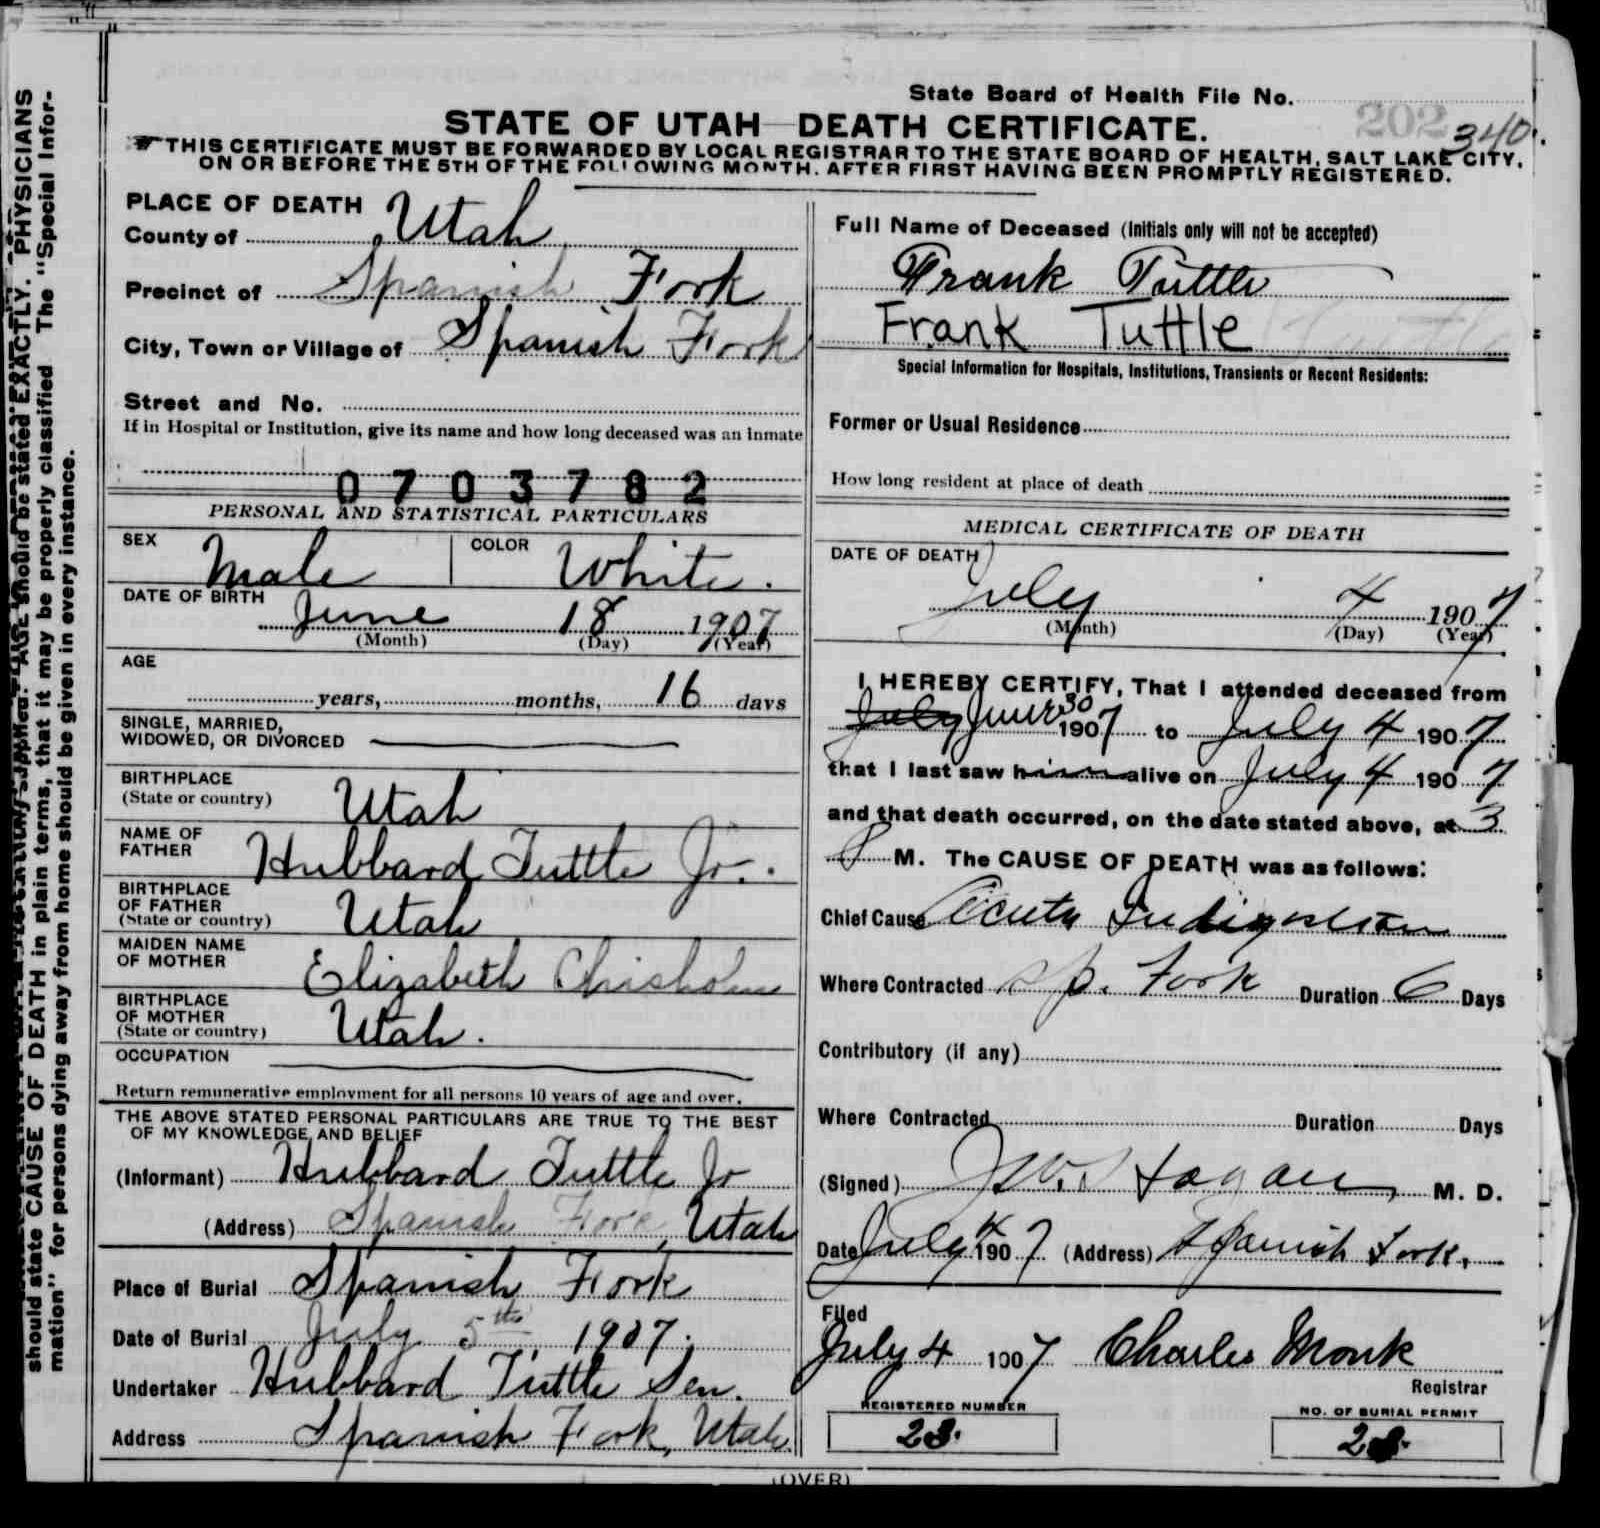 State Board of Health File No. 202 340
STATE OF UTAH—DEATH CERTIFICATE.
THIS CERTIFICATE MUST BE FORWARDED BY LOCAL REGISTRAR TO THE STATE BOARD OF HEALTH, SALT LAKE CITY,
ON OR BEFORE THE 5TH OF THE FOLLOWING MONTH, AFTER FIRST HAVING BEEN PROMPTLY REGISTERED.
PLACE OF DEATH
County of Utah
Precinct of Spanish Fork
City, Town or Village of Spanish Fork
Street and No.
If in Hospital or Institution, give its name and how long deceased was an inmate
0703782
PERSONAL AND STATISTICAL PARTICULARS
SEX Male COLOR White.
DATE OF BIRTH June 18 1907
(Month) (Day) (Year)
AGE
years, months, 16 days
SINGLE, MARRIED,
WIDOWED, OR DIVORCED
BIRTHPLACE
(State or country) Utah
NAME OF
FATHER Hubbard Tuttle Jr.
BIRTHPLACE
OF FATHER
(State or country) Utah
MAIDEN NAME
OF MOTHER Elizabeth Chisholm
BIRTHPLACE
OF MOTHER
(State or country) Utah.
OCCUPATION
Return remunerative employment for all persons 10 years of age and over.
THE ABOVE STATED PERSONAL PARTICULARS ARE TRUE TO THE BEST
OF MY KNOWLEDGE AND BELIEF
(Informant) Hubbard Tuttle Jr
(Address) Spanish Fork, Utah
Place of Burial Spanish Fork
Date of Burial July 5th 1907.
Undertaker Hubbard Tuttle Sen.
Address Spanish Fork, Utah.
Full Name of Deceased (Initials only will not be accepted)
Frank Tuttle
Frank Tuttle
Special Information for Hospitals, Institutions, Transients or Recent Residents:
Former or Usual Residence
How long resident at place of death
MEDICAL CERTIFICATE OF DEATH
DATE OF DEATH
July 4 1907
(Month) (Day) (Year)
I HEREBY CERTIFY, That I attended deceased from
July June 30 1907 to July 4 1907
that I last saw him alive on July 4 1907
and that death occurred, on the date stated above, at 3
P M. The CAUSE OF DEATH was as follows:
Chief Cause Acute Indigestion
Where Contracted Sp. Fork Duration 6 Days
Contributory (if any)
Where Contracted Duration Days
(Signed) Hagan M. D.
Date July 4 1907 (Address) Spanish Fork.
Filed
July 4 1907 Charles Monk
Registrar
REGISTERED NUMBER
23.
NO. OF BURIAL PERMIT
(OVER)
AGE should be stated EXACTLY. PHYSICIANS
should state CAUSE OF DEATH in plain terms, that it may be properly classified The "Special Infor-
mation" for persons dying away from home should be given in every instance.